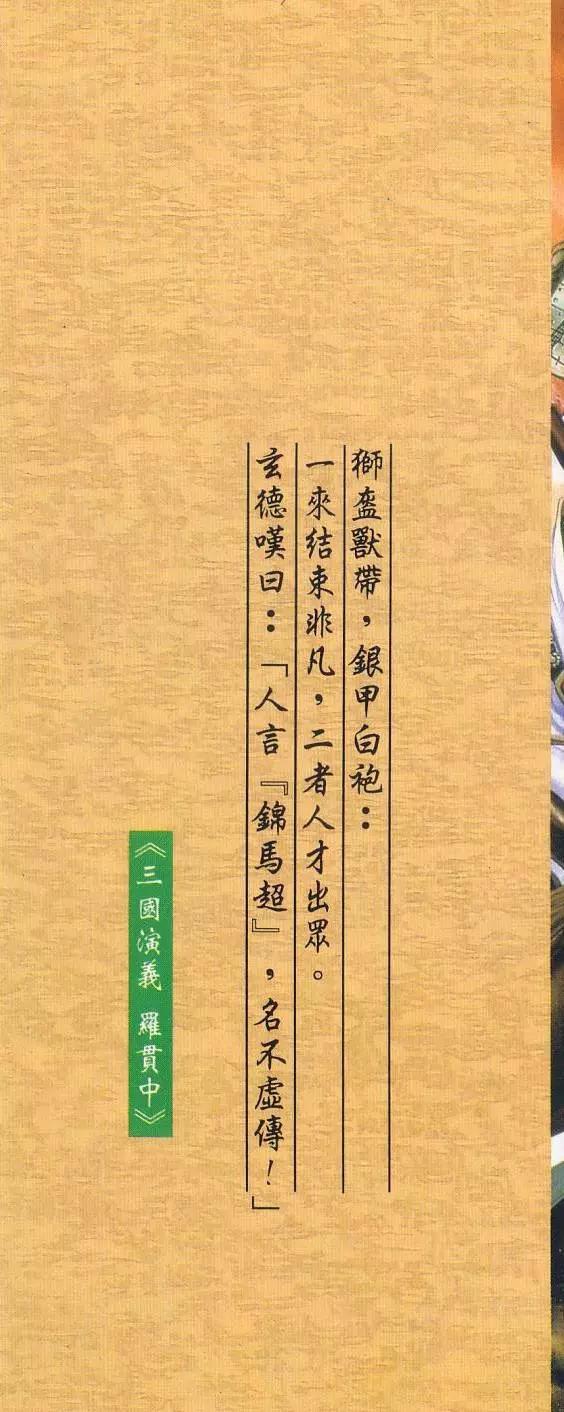 獅盔獸帶，銀甲白袍：
一來結束非凡，二者人才出眾。
玄德嘆曰：「人言『錦馬超』，名不虛傳！」
《三國演義 羅貫中》